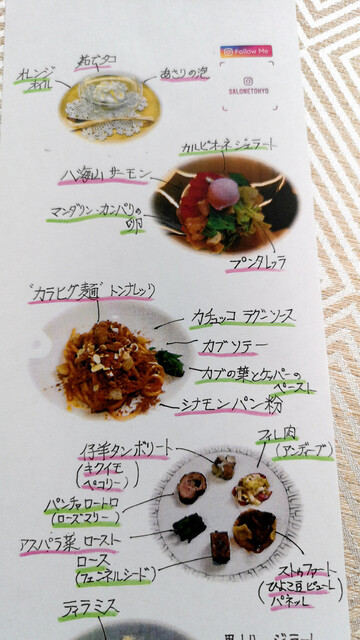 Follow Me
SALONETOKYO
茹でタコ
オレンジ
オイル
あさりの泡
カルピオーネ ジェラート
八海山 サーモン
マンダリン・カンパリの
卵
プンタレッラ
"カラヒグ麺" トンナレッリ
カチュッコ ラグーソース
カブソテー
カブの葉とケッパーの
ペースト
シナモンパン粉
仔羊タンボリート
(キクイモ
ペコリーノ)
フィレ肉
(アンディーブ)
パンチャロートロ
(ローズマリー)
アスパラ菜 ロースト
ロース
(フェンネルシード)
ストゥファート
(ひよこ豆ピューレ)
パネッレ
ティラミス
ジェラート